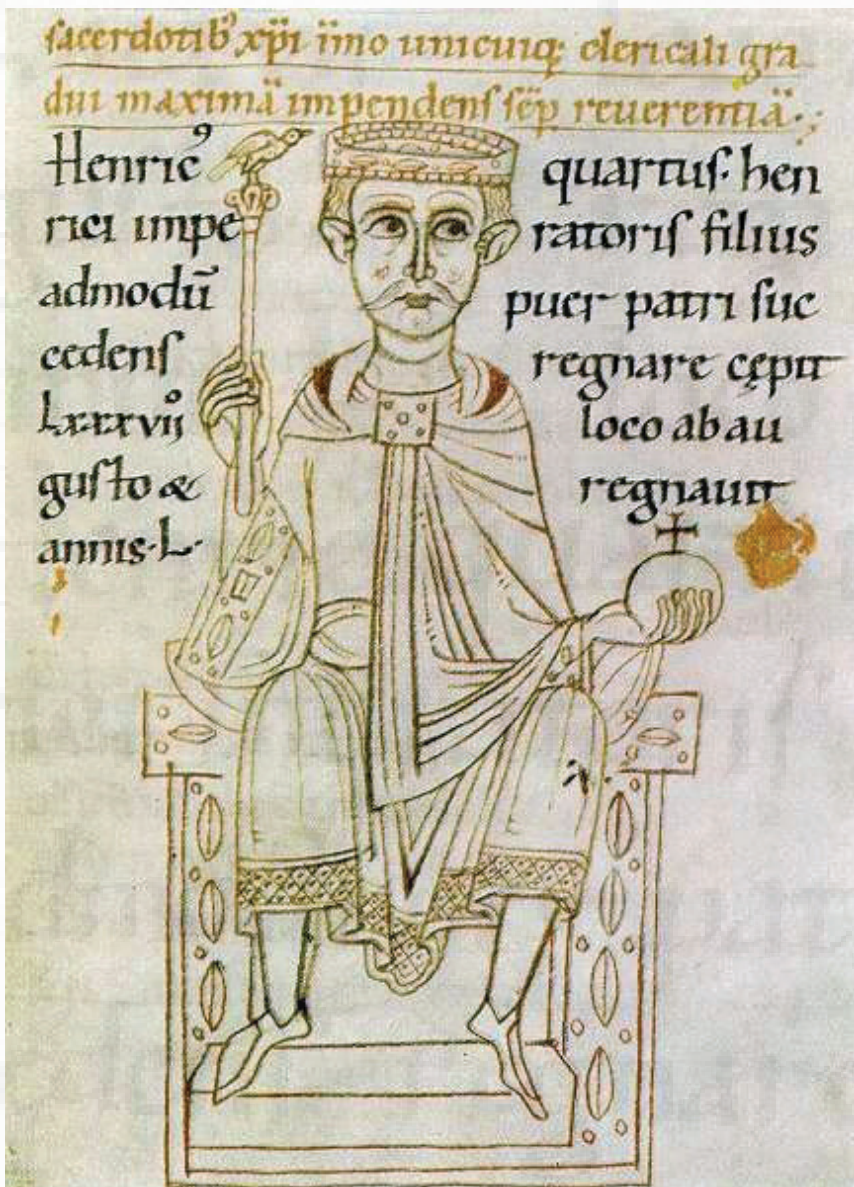 sacerdotib⁹ xp̄i īmo unicuiq; clericali gra
dui maximā impendens sēp reuerentiā.
Henric⁹ quartus. hen
rici impe ratoris filius
admodū puer patri suc
cedens regnare cępit
Lxxxvii° loco ab au
gusto & regnauit
annis·L·